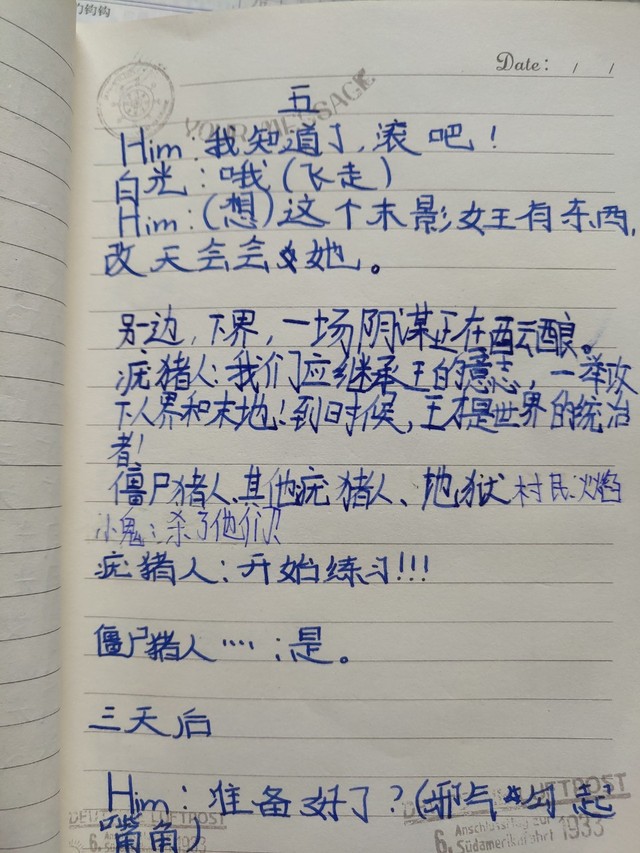 的钩钩
Date: / /
YOUR MESSAGE
五
Him:我知道了,滚吧!
白光:哦(飞走)
Him:(想)这个末影女王有东西,
改天会会她。
另一边,下界,一场阴谋正在酝酿。
疣猪人:我们应继承王的意志,一举攻
下人界和末地!到时候,王才是世界的统治
者!
僵尸猪人、其他疣猪人、地狱村民、火焰
小鬼:杀了他们!
疣猪人:开始练习!!!
僵尸猪人····:是。
三天后
Him:准备好了?(邪气勾起
嘴角)
LUFTPOST
6. Südamerikafahrt 1933